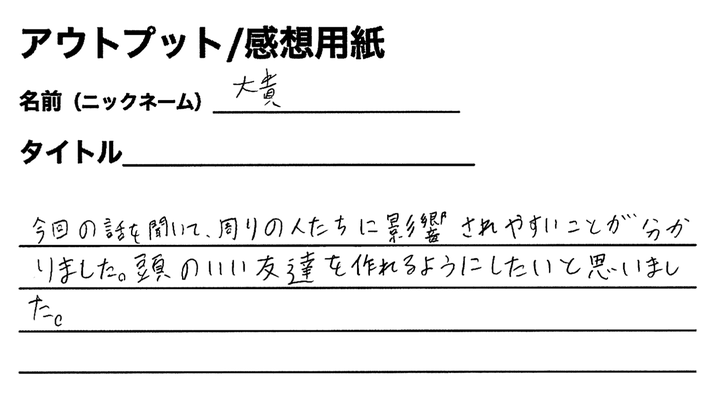 アウトプット/感想用紙
名前（ニックネーム） 大貴
タイトル
今回の話を聞いて、周りの人たちに影響されやすいことが分か
りました。頭のいい友達を作れるようにしたいと思いまし
た。